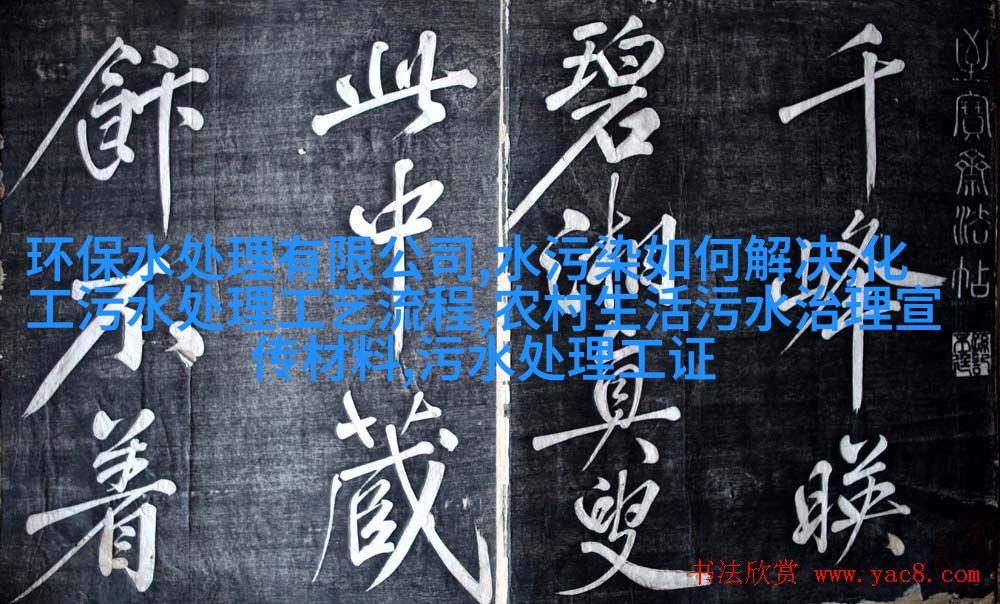 至寶齋法帖
千峰映
碧湘真叟
此中藏
飰不着
环保水处理有限公司,水污染如何解决,化
工污水处理工艺流程,农村生活污水治理宣
传材料,污水处理工证
书法欣赏 www.yac8.com